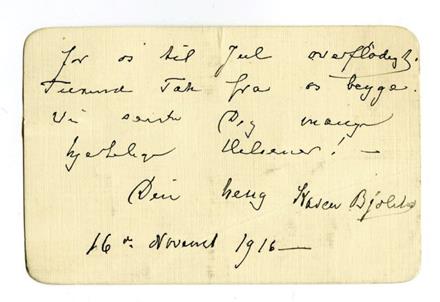 for os til Jul overflødigt.
Tusind Tak fra os begge.
Vi sender Dig mange
hjertelige Hilsener! —
Din heng Karen Bjølstad
16 de November 1916 —